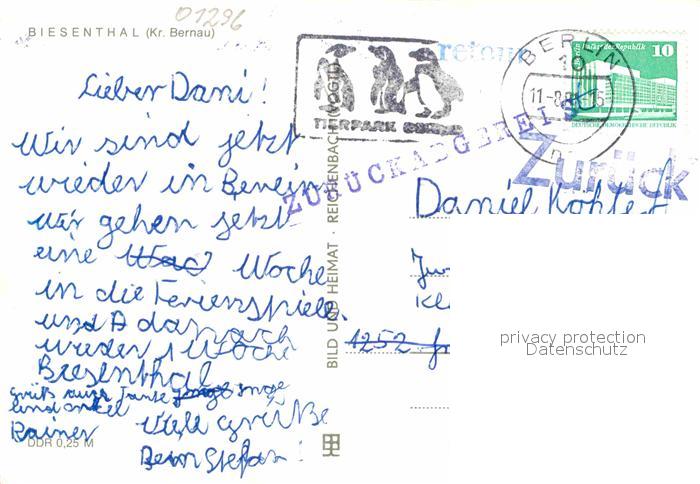 01296
BIESENTHAL (Kr. Bernau)
retour
TIERPARK BERLIN
BERLIN
10
11-8.8
-15
Palast der Republik
10
DEUTSCHE DEMOKRATISCHE REPUBLIK
ZURÜCK
ABGEREIST
Zurück
Lieber Dani!
Wir sind jetzt
wieder in Berein
wir gehen jetzt
eine Woche
in die Ferienspiele.
und danach
wieder 1 Woche
Biesenthal
Grüß Tante
und onkel
Rainer
Viele Grüße
Dein Stefan!
DDR 0,25 M
BILD UND HEIMAT · REICHENBACH (VOGTL)
Daniel Kohle
1252
privacy protection
Datenschutz